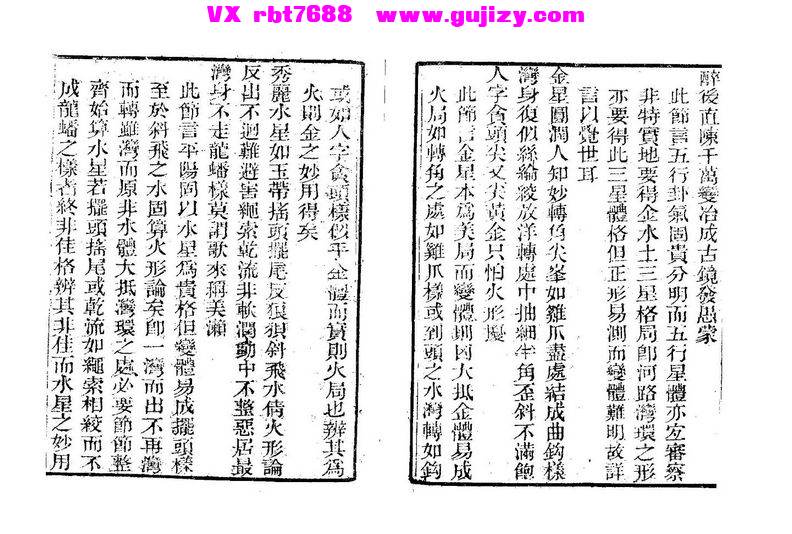 VX rbt7688 www.gujizy.com
醉後直陳千萬變冶成古鏡發愚蒙
此節言五行卦氣固貴分明而五行星體亦宜審察
非特實地要得金水土三星格局卽河路灣環之形
亦要得此三星體格但正形易測而變體難明故詳
言以覺世耳
金星圓濶人知妙轉角尖峯如雞爪盡處結成曲鈎樣
灣身復似絲綸綾放洋轉處中抽細牛角歪斜不滿飽
人字貪頭尖又尖黃金只怕火形擾
此節言金星本爲美局而變體則凶大抵金體易成
火局如轉角之處如雞爪樣或到頭之水灣轉如鈎
或如人字貪頭樣似乎金體而實則火局也辨其爲
火則金之妙用得矣
秀麗水星如玉帶搖頭擺尾反狼狽斜飛水倩火形論
反出不迴難避害繩索乾流非軟濶動中不整惡居最
灣身不走龍蟠樣莫謂歌來稱美瀨
此節言平陽固以水星爲貴格但變體易成擺頭樣
至於斜飛之水固算火形論矣卽一灣而出不再灣
而轉雖灣而原非水體大抵灣環之處必要節節整
齊始算水星若擺頭搖尾或乾流如繩索相絞而不
成龍蟠之樣者終非佳格辨其非佳而水星之妙用